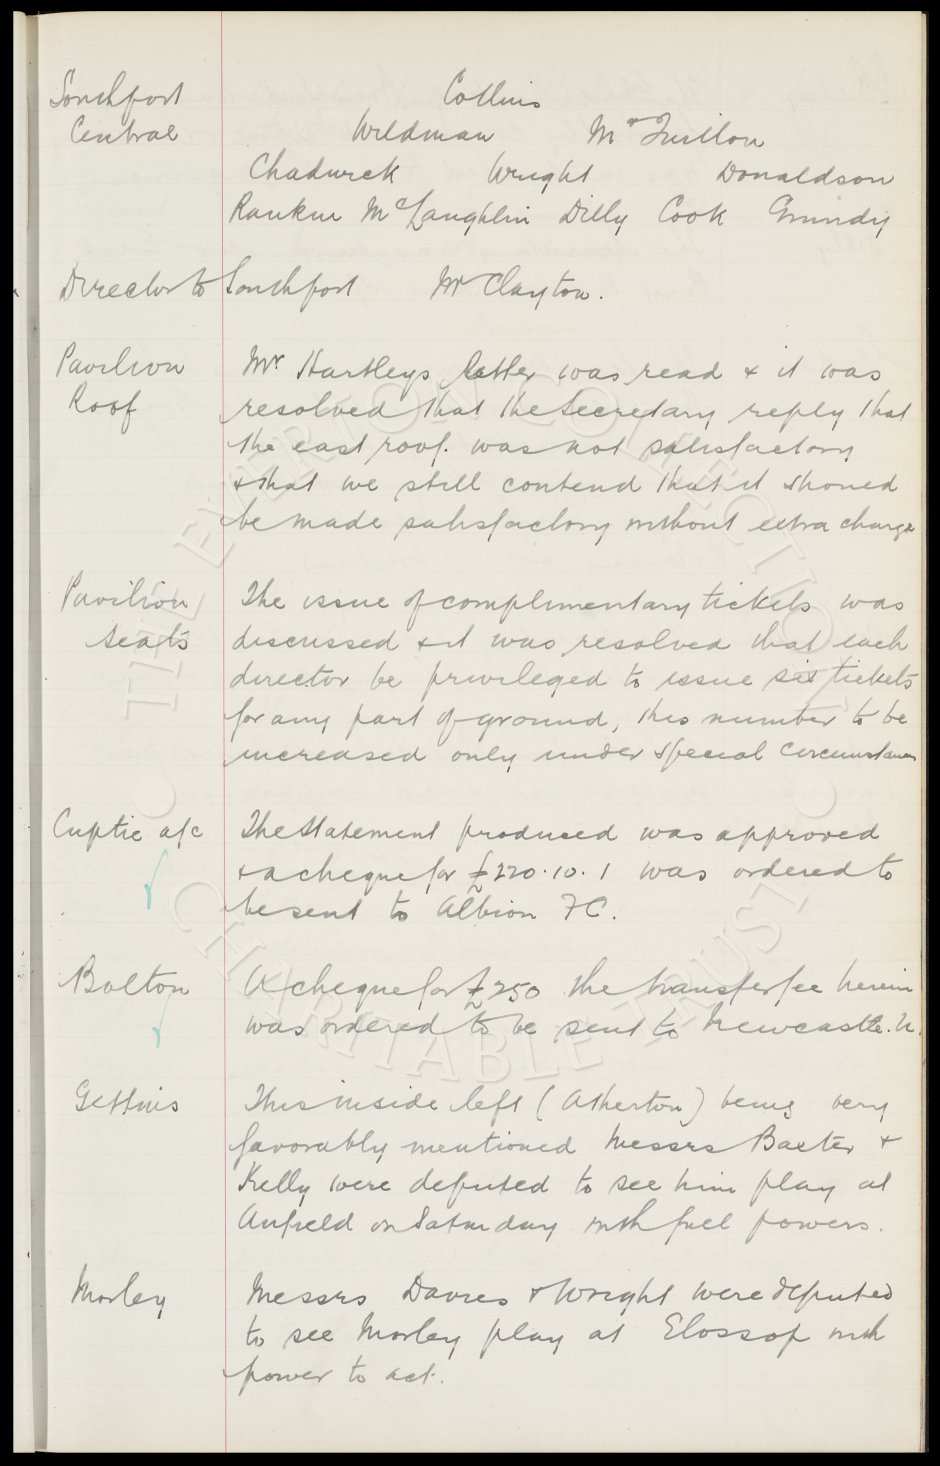 Southport Collins
Central Wildman McQuillon
Chadwick Wright Donaldson
Rankin McLaughlin Dilly Cook Grundy
Director to Southport Mr Clayton.
Pavilion Mr Hartleys letter was read & it was
Roof resolved that the Secretary reply that
the east roof. was not satisfactory
& that we still contend that it should
be made satisfactory without extra charge
Pavilion The issue of complimentary tickets was
seats discussed & it was resolved that each
director be privileged to issue six tickets
for any part of ground, this number to be
increased only under special circumstances
Cuptie a/c The Statement produced was approved
& a cheque for £220.10.1 was ordered to
be sent to Albion F C.
Bolton A cheque for £250 the transfer fee herein
was ordered to be sent to Newcastle. U.
Gettins This inside left (Atherton) being very
favorably mentioned Messrs Baxter &
Kelly were deputed to see him play at
Anfield on Saturday with full powers.
Morley Messrs Davies & Wright were deputed
to see Morley play at Glossop with
power to act.
THE EVERTON COLLECTION
CHARITABLE TRUST